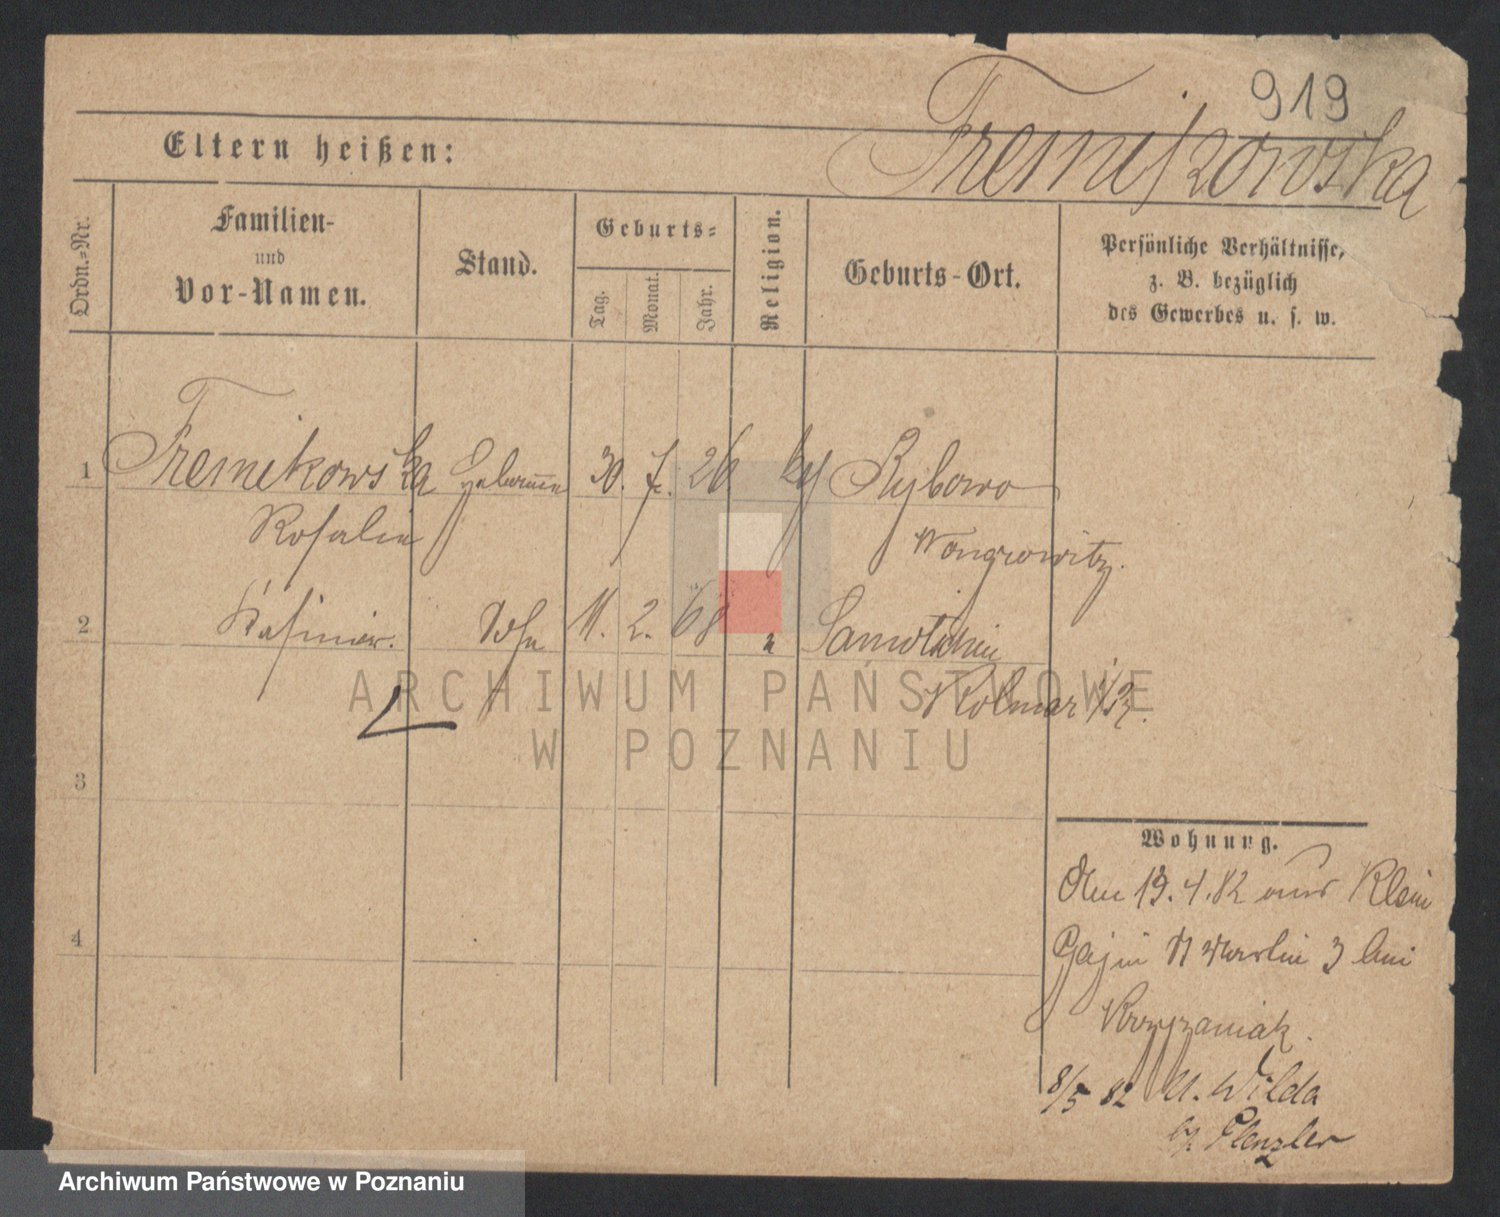 919
Eltern heißen:
Fremiszowska
Ordn.-Nr.
Familien-
und
Vor-Namen.
Stand.
Geburts-
Tag.
Monat.
Jahr.
Religion.
Geburts-Ort.
Persönliche Verhältnisse,
z. B. bezüglich
des Gewerbes u. s. w.
1 Fremikowska 30. 7. 26 Rybowo
Rosalie Wongrowitz.
2 Kasimir. 11. 2. 68 " Samotschin
Kolmar i/P.
ARCHIWUM PAŃSTWOWE
W POZNANIU
3
Wohnung.
Den 19.4.82 aus Klein
4
3 bei
Krzyzaniak.
8/5 82 U. Wilda
Plenzler
Archiwum Państwowe w Poznaniu